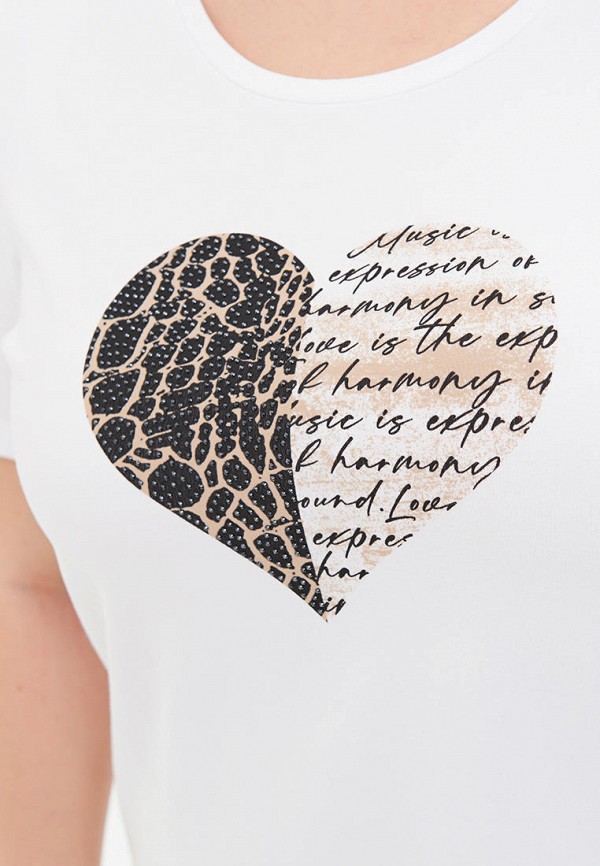 Music
expression of
harmony in
love is the exp
harmony in
usic is expres
harmony
ound. Love
expres
har
in